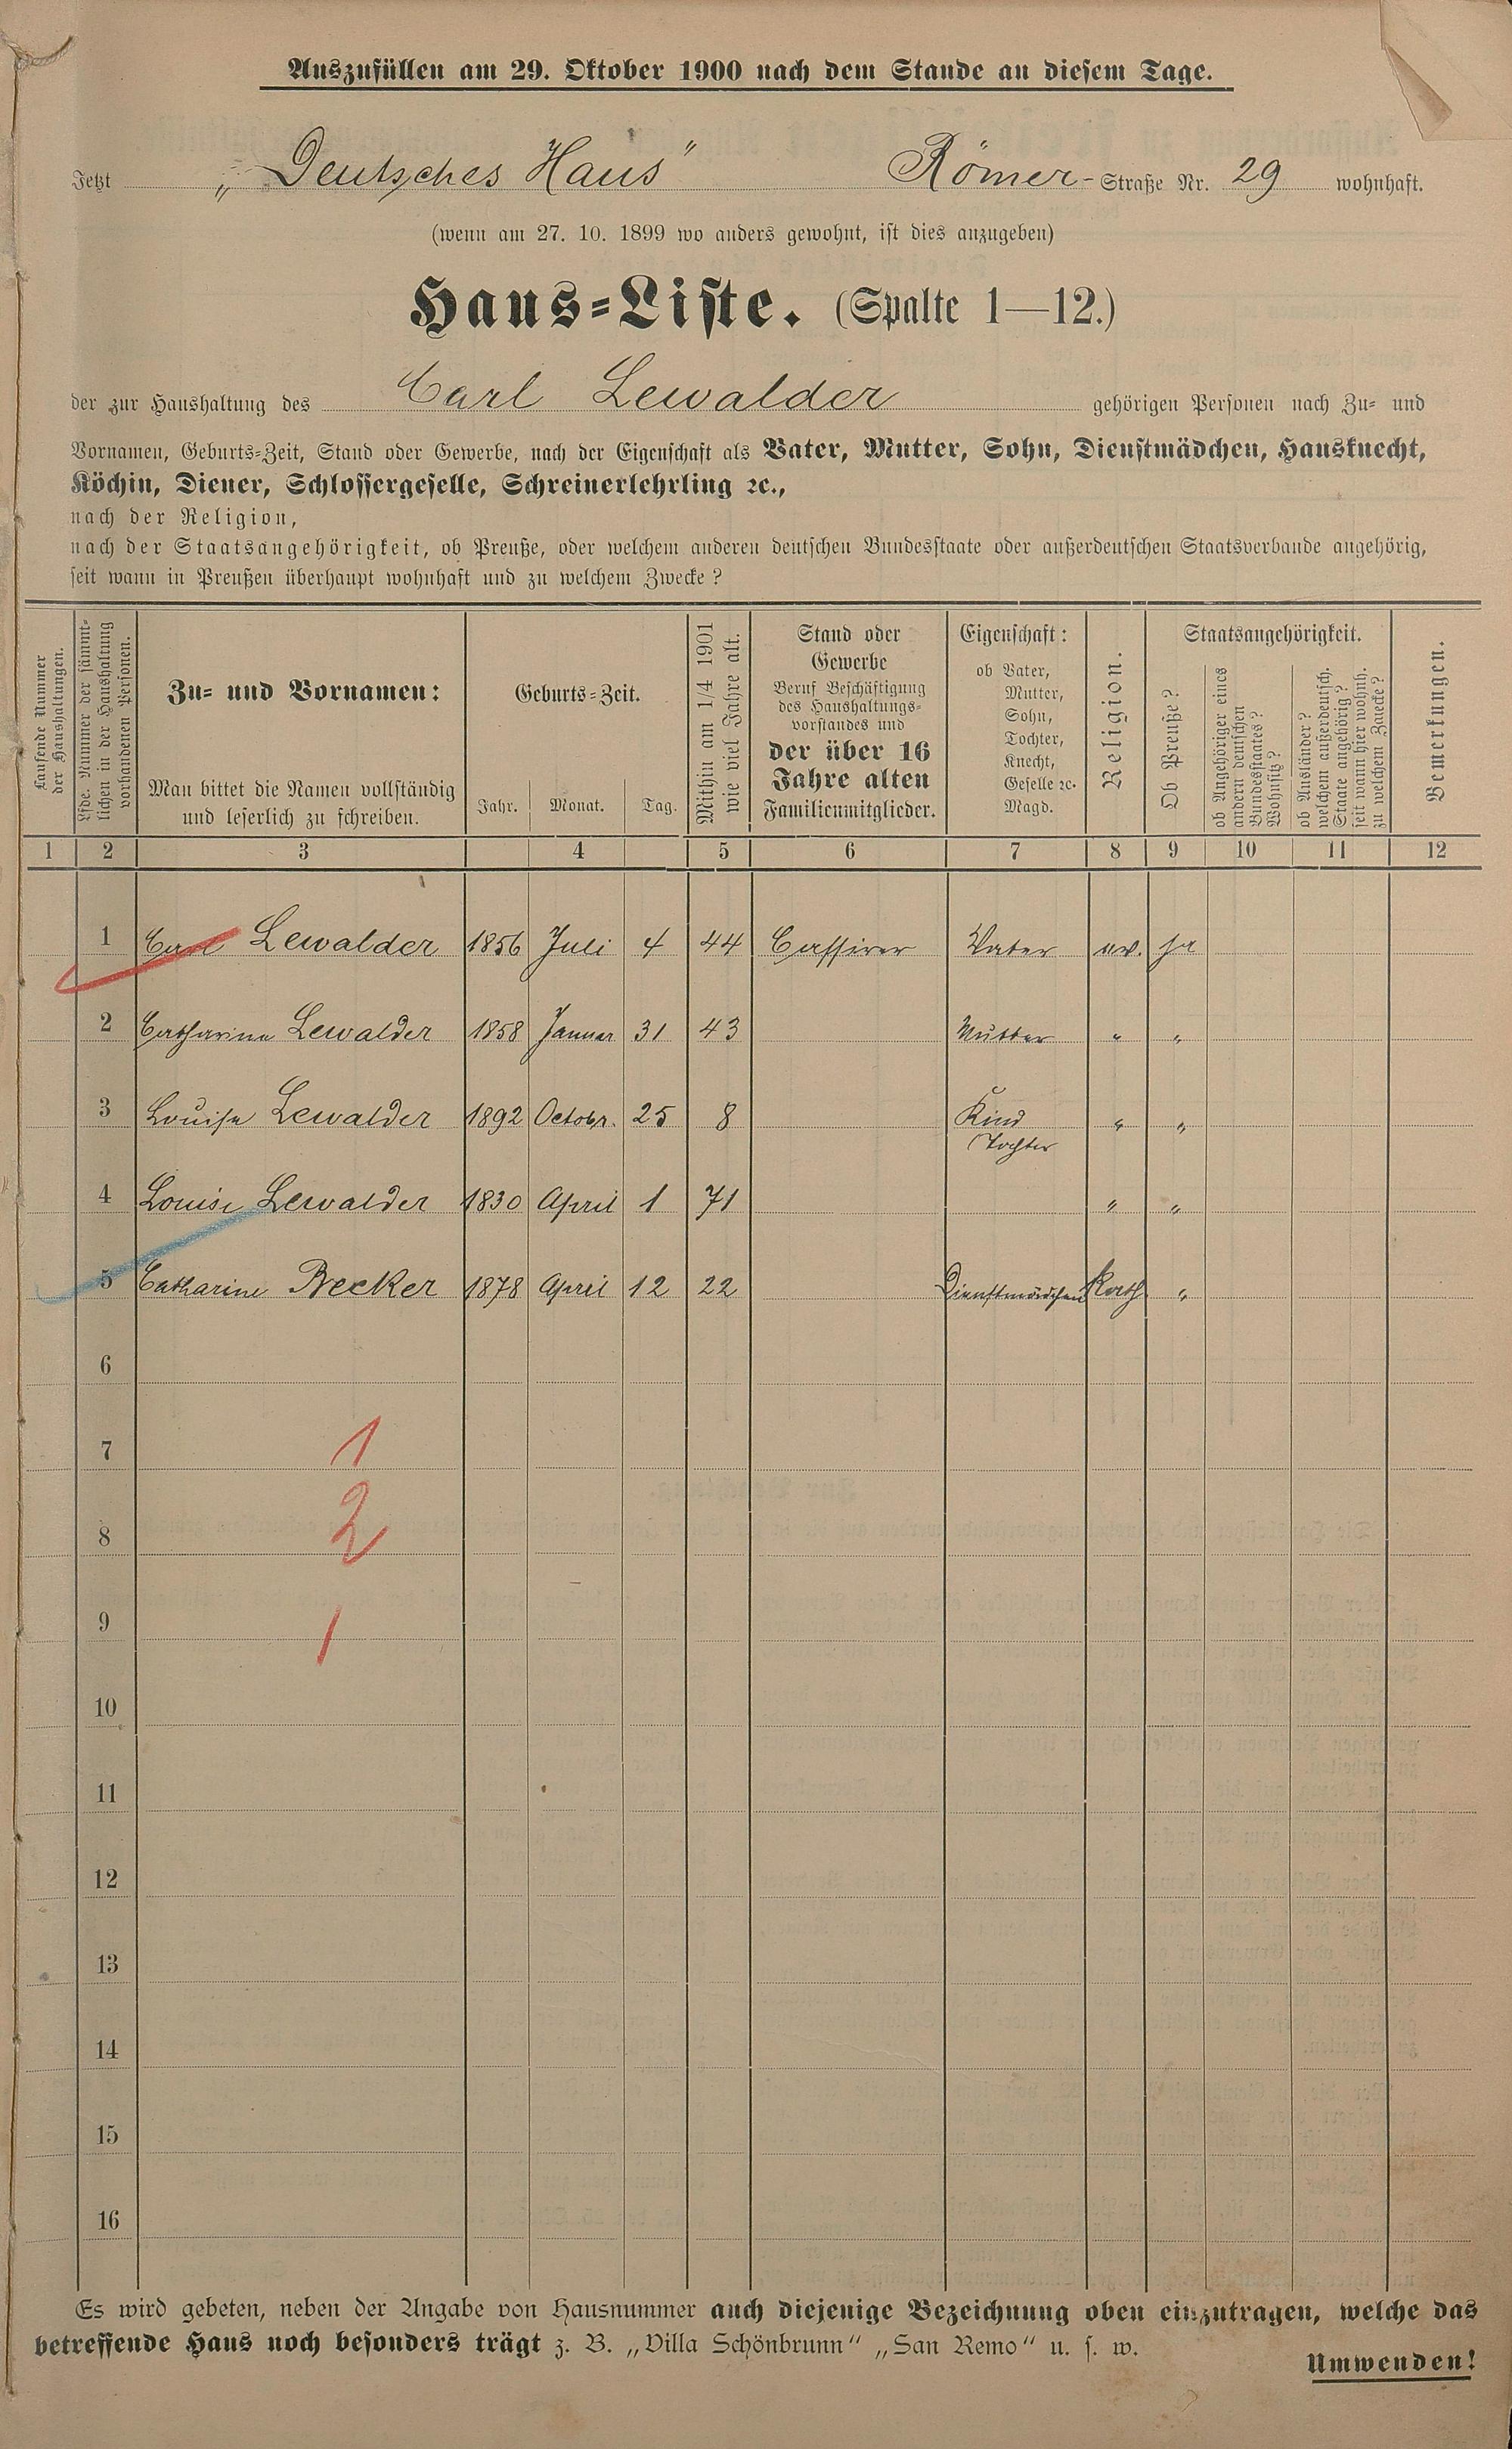 Auszufüllen am 29. Oktober 1900 nach dem Stande an diesem Tage.
Jetzt „Deutsches Haus“ Römer- Straße Nr. 29 wohnhaft.
(wenn am 27. 10. 1899 wo anders gewohnt, ist dies anzugeben)
Haus-Liste. (Spalte 1—12.)
der zur Haushaltung des Carl Lewalder gehörigen Personen nach Zu- und
Vornamen, Geburts-Zeit, Stand oder Gewerbe, nach der Eigenschaft als Vater, Mutter, Sohn, Dienstmädchen, Hausknecht,
Köchin, Diener, Schlossergeselle, Schreinerlehrling ꝛc.,
nach der Religion,
nach der Staatsangehörigkeit, ob Preuße, oder welchem anderen deutschen Bundesstaate oder außerdeutschen Staatsverbande angehörig,
seit wann in Preußen überhaupt wohnhaft und zu welchem Zwecke?
Laufende Nummer
der Haushaltungen.
Lfde. Nummer der sämmt-
lichen in der Haushaltung
vorhandenen Personen.
Zu- und Vornamen:
Man bittet die Namen vollständig
und leserlich zu schreiben.
Geburts-Zeit.
Jahr. Monat. Tag.
Mithin am 1/4 1901
wie viel Jahre alt.
Stand oder
Gewerbe
Beruf Beschäftigung
des Haushaltungs-
vorstandes und
der über 16
Jahre alten
Familienmitglieder.
Eigenschaft:
ob Vater,
Mutter,
Sohn,
Tochter,
Knecht,
Geselle ꝛc.
Magd.
Religion.
Staatsangehörigkeit.
Ob Preuße?
ob Angehöriger eines
andern deutschen
Bundesstaates?
Wohnsitz?
ob Ausländer?
welchem außerdeutsch.
Staate angehörig?
seit wann hier wohnh.
zu welchem Zwecke?
Bemerkungen.
1 2 3 4 5 6 7 8 9 10 11 12
1 Carl Lewalder 1856 Juli 4 44 Cassirer Vater ev. ja
2 Catharina Lewalder 1858 Januar 31 43 Mutter " "
3 Louise Lewalder 1892 Octobr. 25 8 Kind " "
Tochter
4 Louise Lewalder 1830 April 1 71 " "
5 Catharine Becker 1878 April 12 22 Dienstmädchen Kath. "
6
7 1
8 2
9 1
10
11
12
13
14
15
16
Es wird gebeten, neben der Angabe von Hausnummer auch diejenige Bezeichnung oben einzutragen, welche das
betreffende Haus noch besonders trägt z. B. „Villa Schönbrunn“ „San Remo“ u. s. w.
Umwenden!